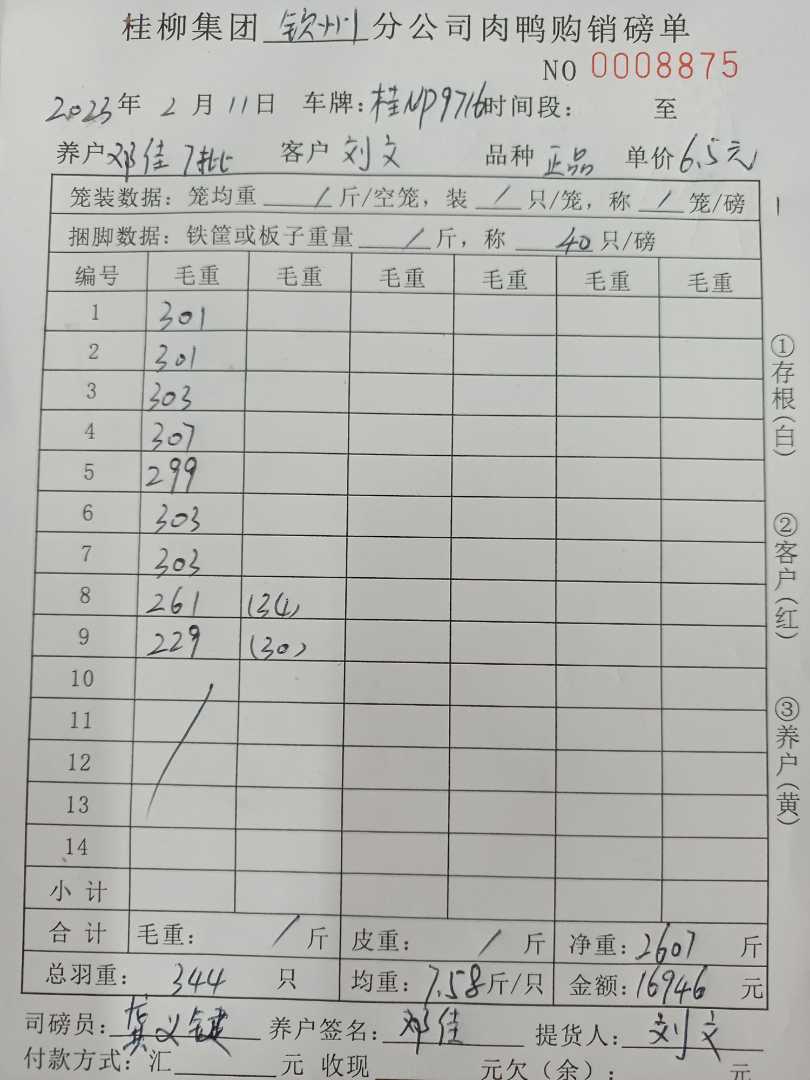 桂柳集团 钦州 分公司肉鸭购销磅单
NO 0008875
2023年 2 月 11日 车牌:桂NP9716时间段: 至
养户邓佳 7批 客户 刘文 品种 正品 单价6.5元
笼装数据:笼均重 / 斤/空笼,装 / 只/笼,称 / 笼/磅
捆脚数据:铁筐或板子重量 / 斤,称 40只/磅
编号 毛重 毛重 毛重 毛重 毛重 毛重
1 301
2 301
3 303
4 307
5 299
6 303
7 303
8 261 (34)
9 229 (30)
10
11
12
13
14
小计
合计 毛重: / 斤 皮重: / 斤 净重:2607 斤
总羽重: 344 只 均重:7.58斤/只 金额:16946 元
司磅员:龚义键 养户签名:邓佳 提货人:刘文
付款方式:汇 元 收现 元欠(余): 元
①存根(白)
②客户(红)
③养户(黄)